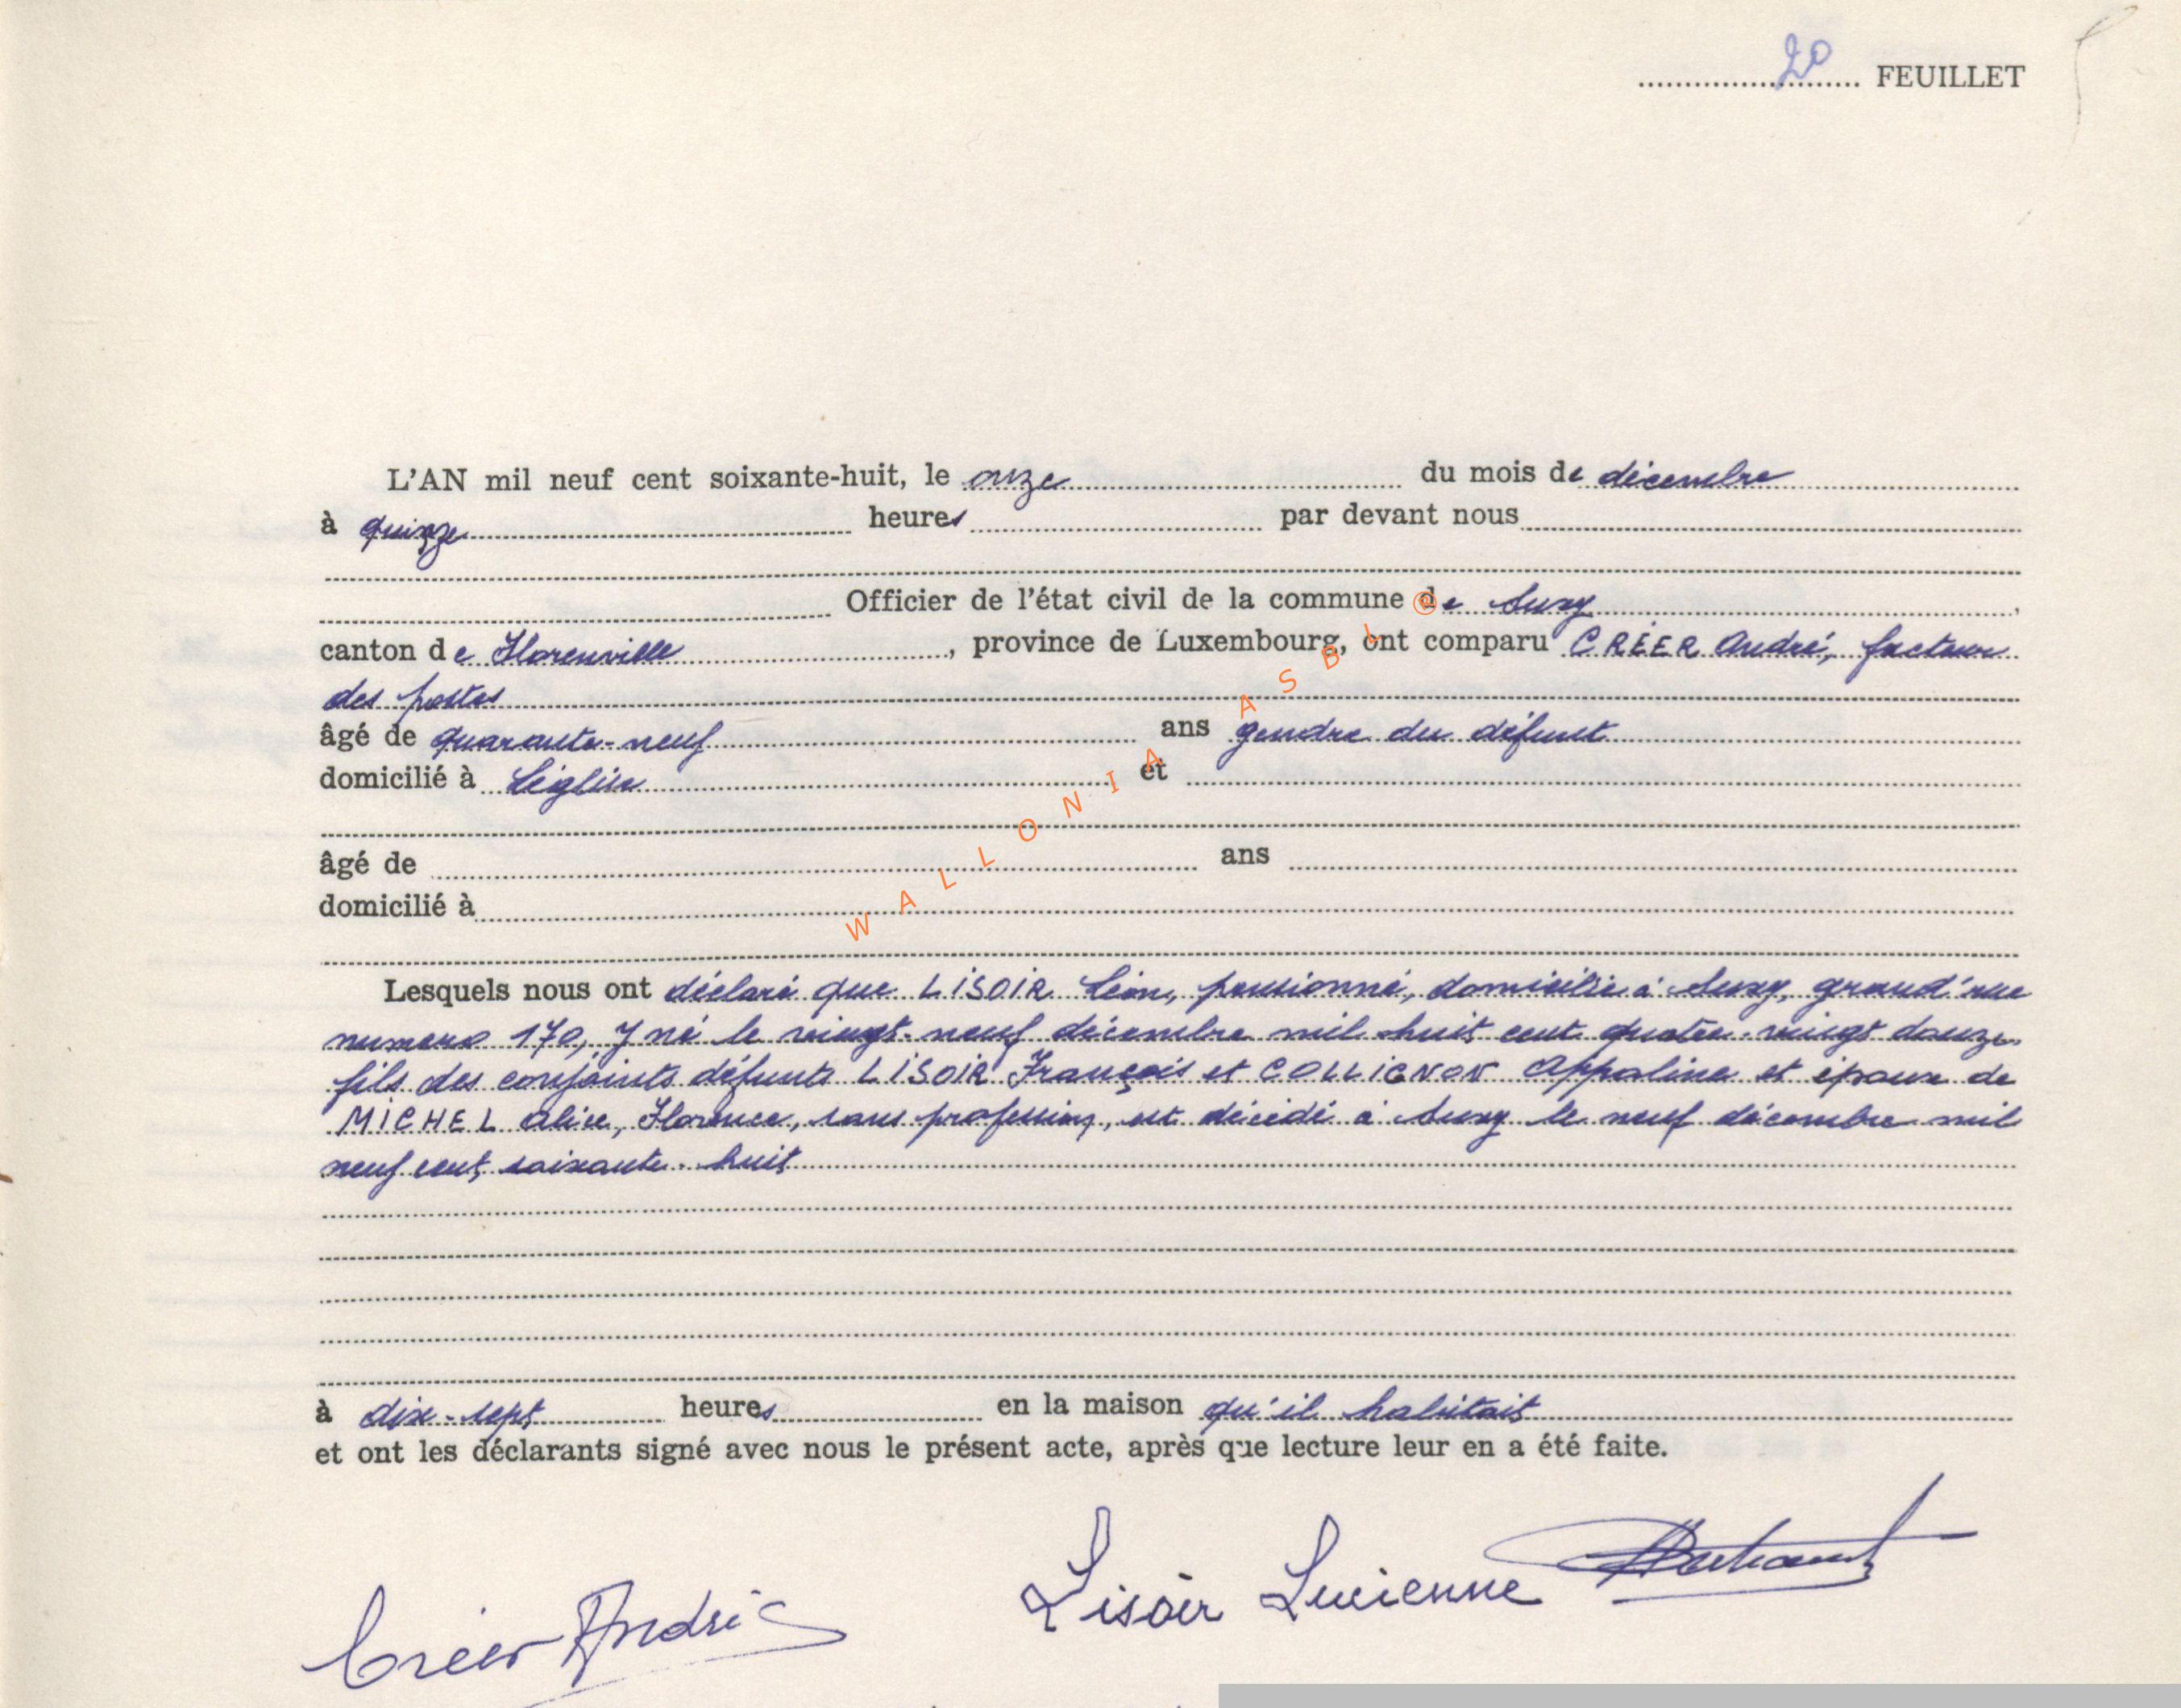 20 FEUILLET
L'AN mil neuf cent soixante-huit, le onze du mois de décembre
à quinze heures par devant nous
Officier de l'état civil de la commune de Suxy,
canton de Florenville, province de Luxembourg, ont comparu CRÉER André, facteur
des postes
âgé de quarante-neuf ans gendre du défunt
domicilié à Léglise et
âgé de ans
domicilié à
Lesquels nous ont déclaré que LISOIR Léon, pensionné, domicilié à Suxy, grand'rue
numero 170, y né le vingt-neuf décembre mil huit cent quatre-vingt douze
fils des conjoints défunts LISOIR François et COLLIGNON Appoline et époux de
MICHEL Alice, Florence, sans profession, est décédé à Suxy le neuf décembre mil
neuf cent soixante-huit
à dix-sept heures en la maison qu'il habitait
et ont les déclarants signé avec nous le présent acte, après que lecture leur en a été faite.
Créer André Lisoir Lucienne
© WALLONIA ASBL